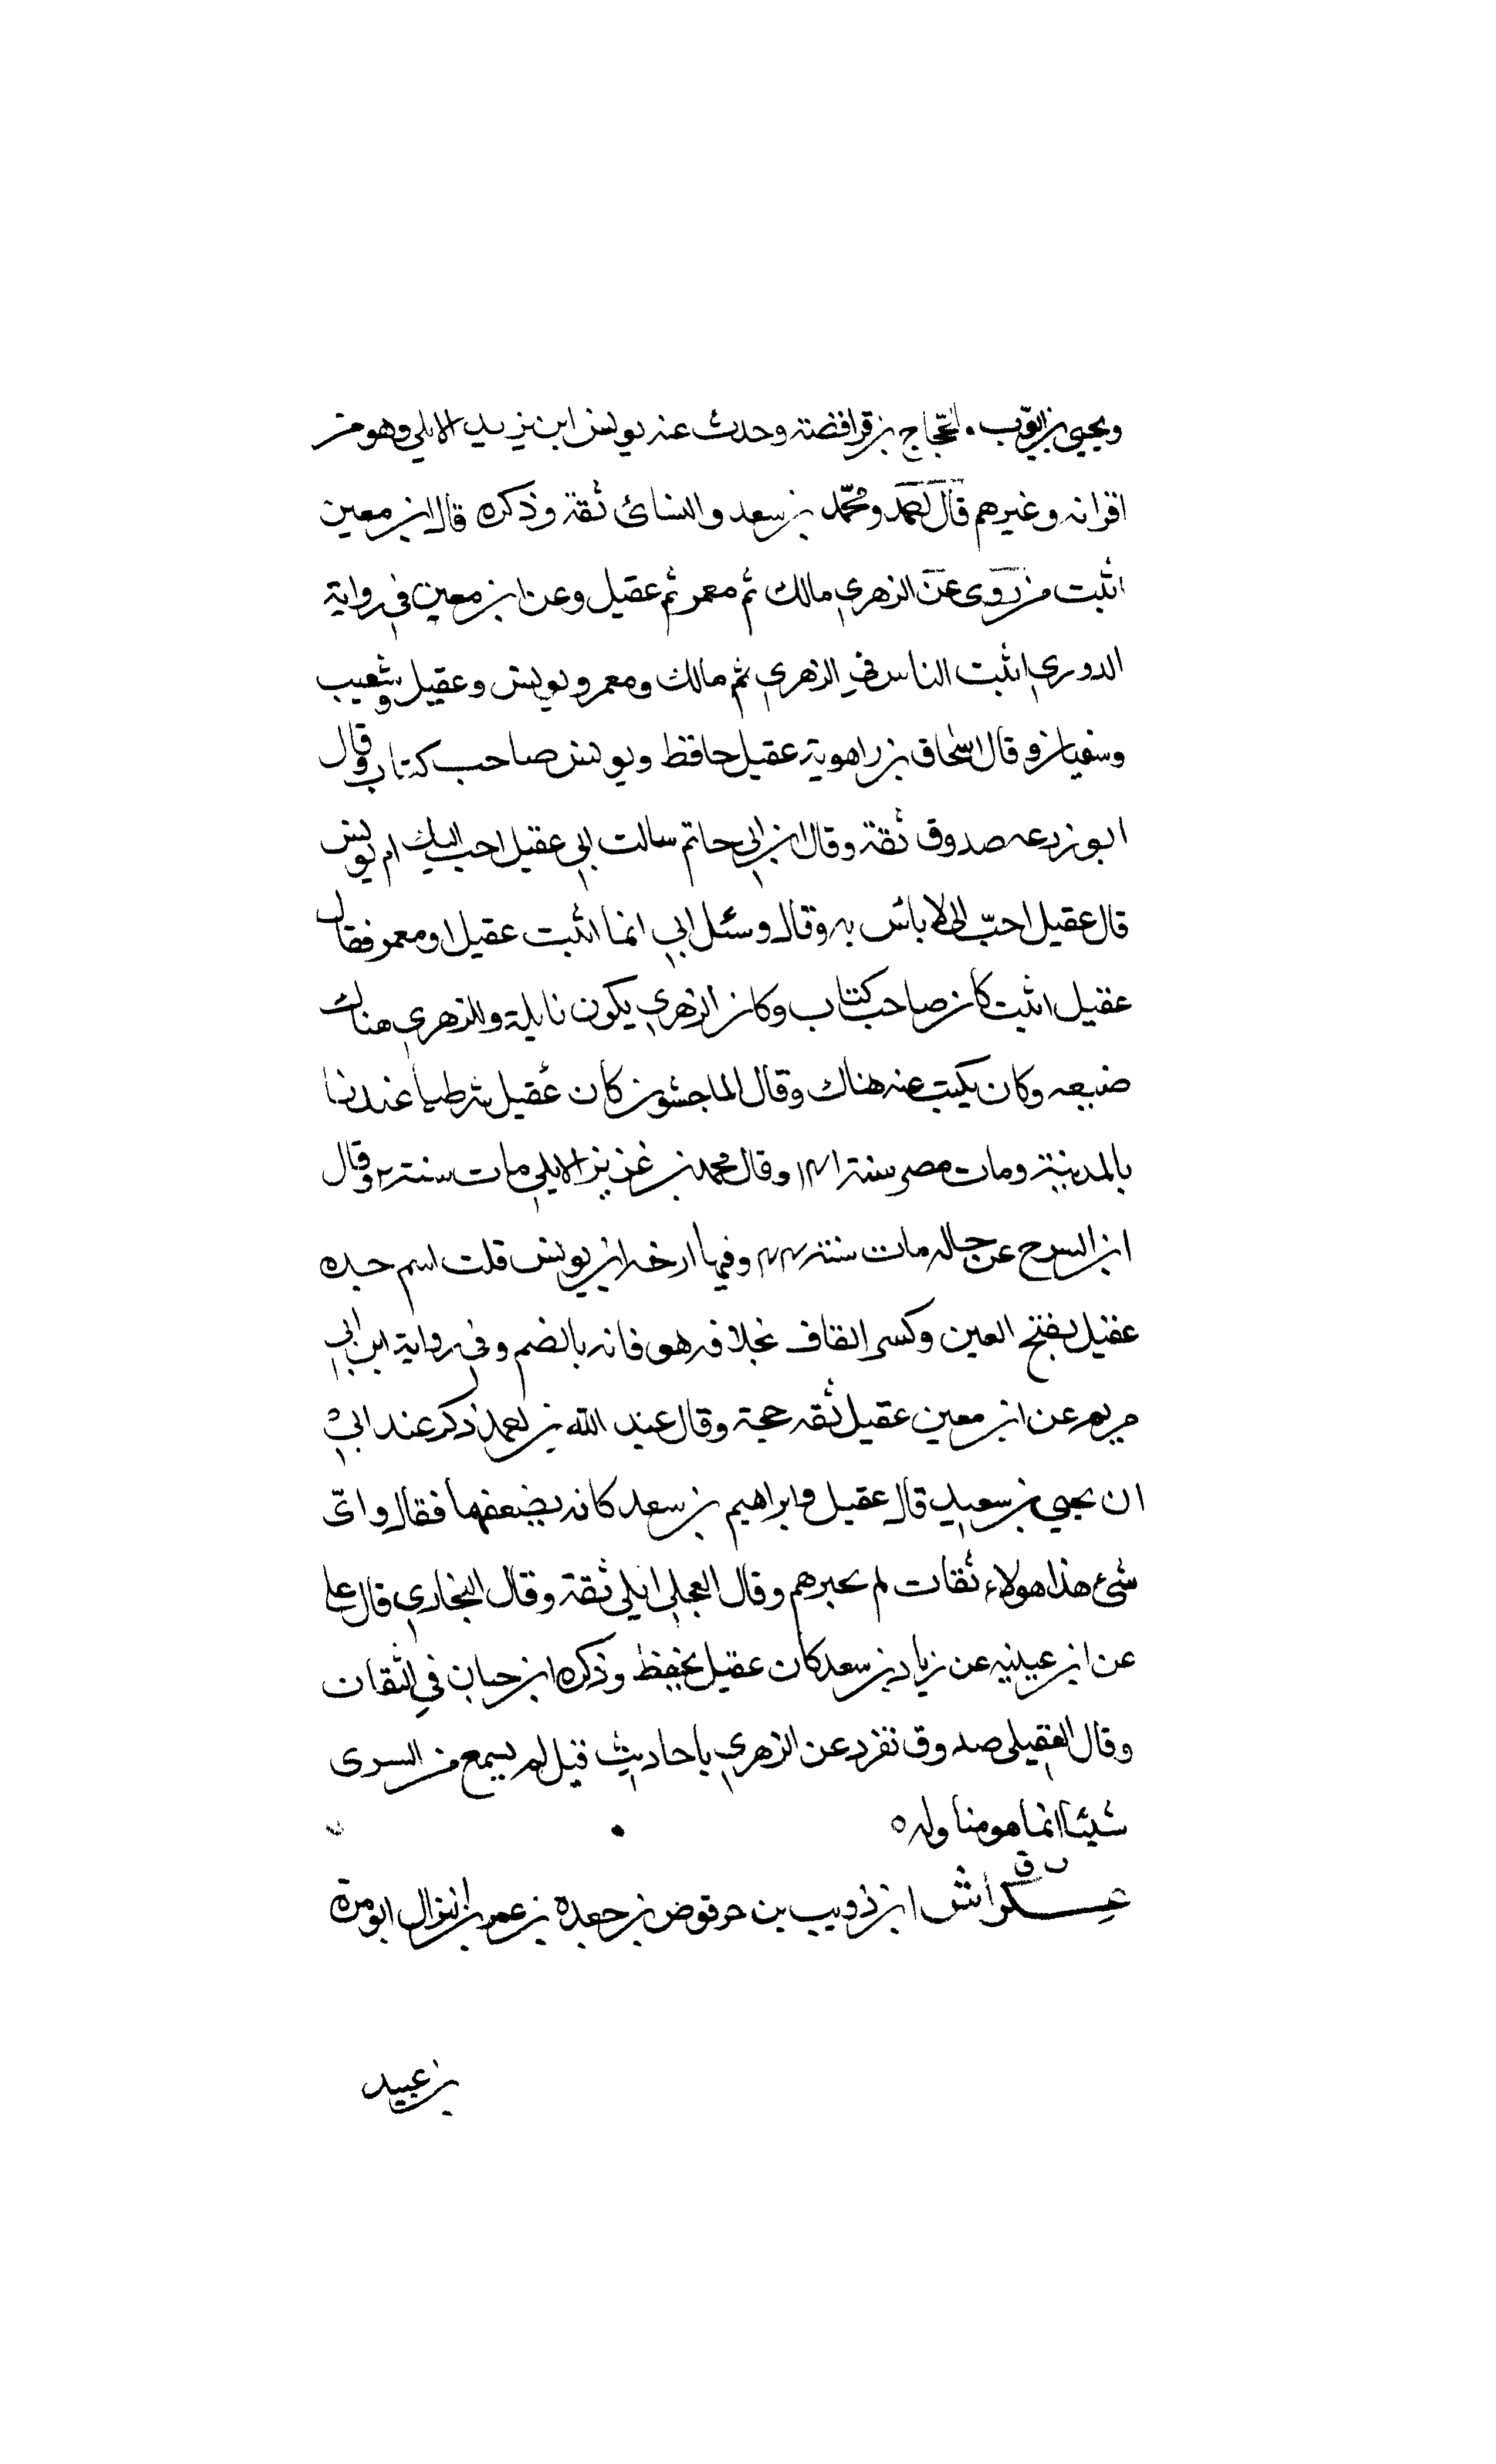 ويحيى بن ايوب. الحجاج بن قرافضة وحدث عنه يونس ابن يزيد الايلي وهو من
اقرانه وغيرهم قال احمد ومحمد بن سعد والنسائ ثقة وذكره قال ابن معين
اثبت من روى عن الزهري مالك ثم معمر ثم عقيل وعن ابن معين في رواية
الدوري اثبت الناس في الزهري ثم مالك ومعمر ويونس وعقيل وشعيب
وسفيان وقال اسحاق بن راهوية عقيل حافظ ويونس صاحب كتاب وقال
ابو زرعه صدوق ثقة وقال ابن ابي حاتم سالت ابي عقيل احب اليك ام يونس
قال عقيل احبّ الى لا باس به وقال وسئل ابي انما اثبت عقيل او معمر فقال
عقيل اثبت كان صاحب كتاب وكان الزهري يكون نايلة وللزهري هناك
ضيعه وكان يكتب عنه هناك وقال الماجشون كان عقيل شرطيا عندنا
بالمدينة ومات مصر سنة ١٤١ وقال محمد بن عزيز الايلي مات سنة ٢ وقال
ابن السرح عن خاله مات سنة ٤٤ وفيها ارخه ابن يونس قلت اسم جده
عقيل بفتح العين وكسر القاف بخلافه هو فانه بالضم وفي رواية ابن ابي
مريم عن ابن معين عقيل ثقه حجة وقال عبد الله بن احمد ذكر عند ابي
ان يحيى بن سعيد قال عقيل وابراهيم بن سعد كانه يضعفهما فقال واىّ
شئ هذا هولاء ثقات لم يخبرهم وقال العجلي ايلي ثقة وقال البخاري قال علي
عن ابن عيينه عن زياد بن سعد كان عقيل يحفظ وذكره ابن حبان في الثقات
وقال العقيلي صدوق تفرد عن الزهري باحاديث قيل لم يسمع من السرى
شيئا انما هو مناوله
ت ق
عكراش ابن ذويب بن حرقوص بن جعده بن عمر بن النزال ابو مرة
بن عبيد